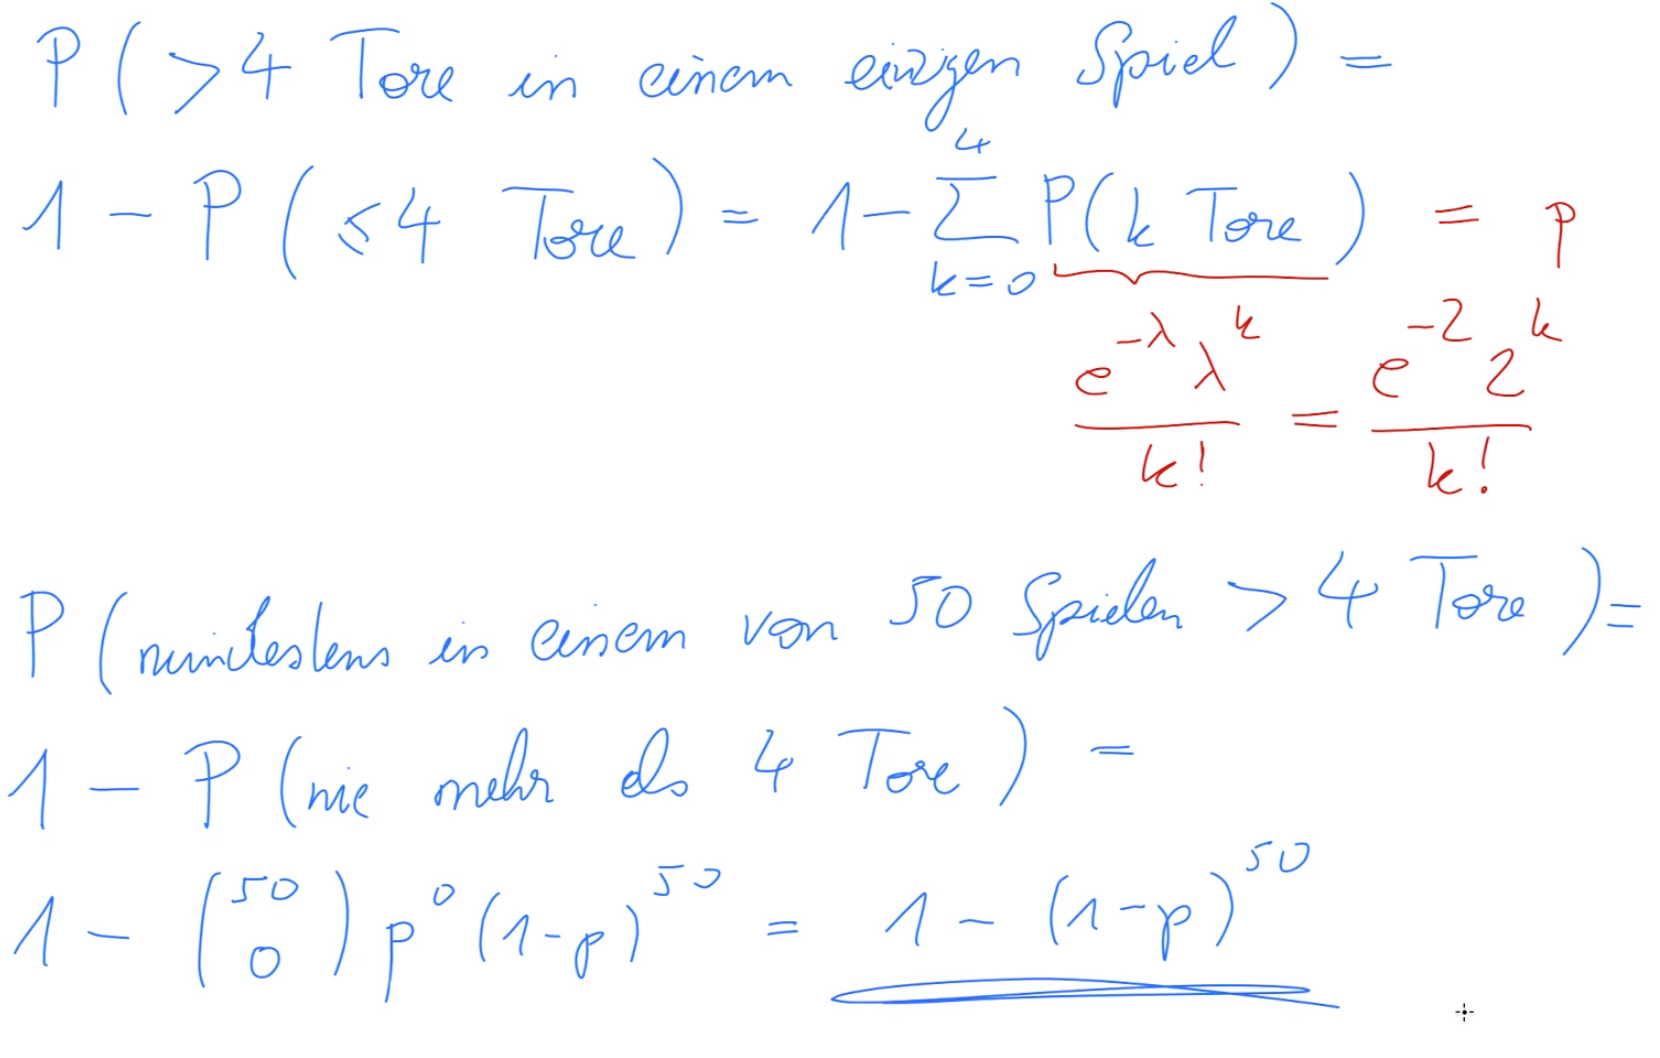 P ( >4 Tore in einem einzigen Spiel ) =
1 - P ( ≤ 4 Tore ) = 1 - ∑_{k=0}^{4} P(k Tore) = p
e^{-λ} λ^k / k! = e^{-2} 2^k / k!
P ( mindestens in einem von 50 Spielen > 4 Tore ) =
1 - P ( nie mehr als 4 Tore ) =
1 - (50 0) p^0 (1-p)^{50} = 1 - (1-p)^{50}